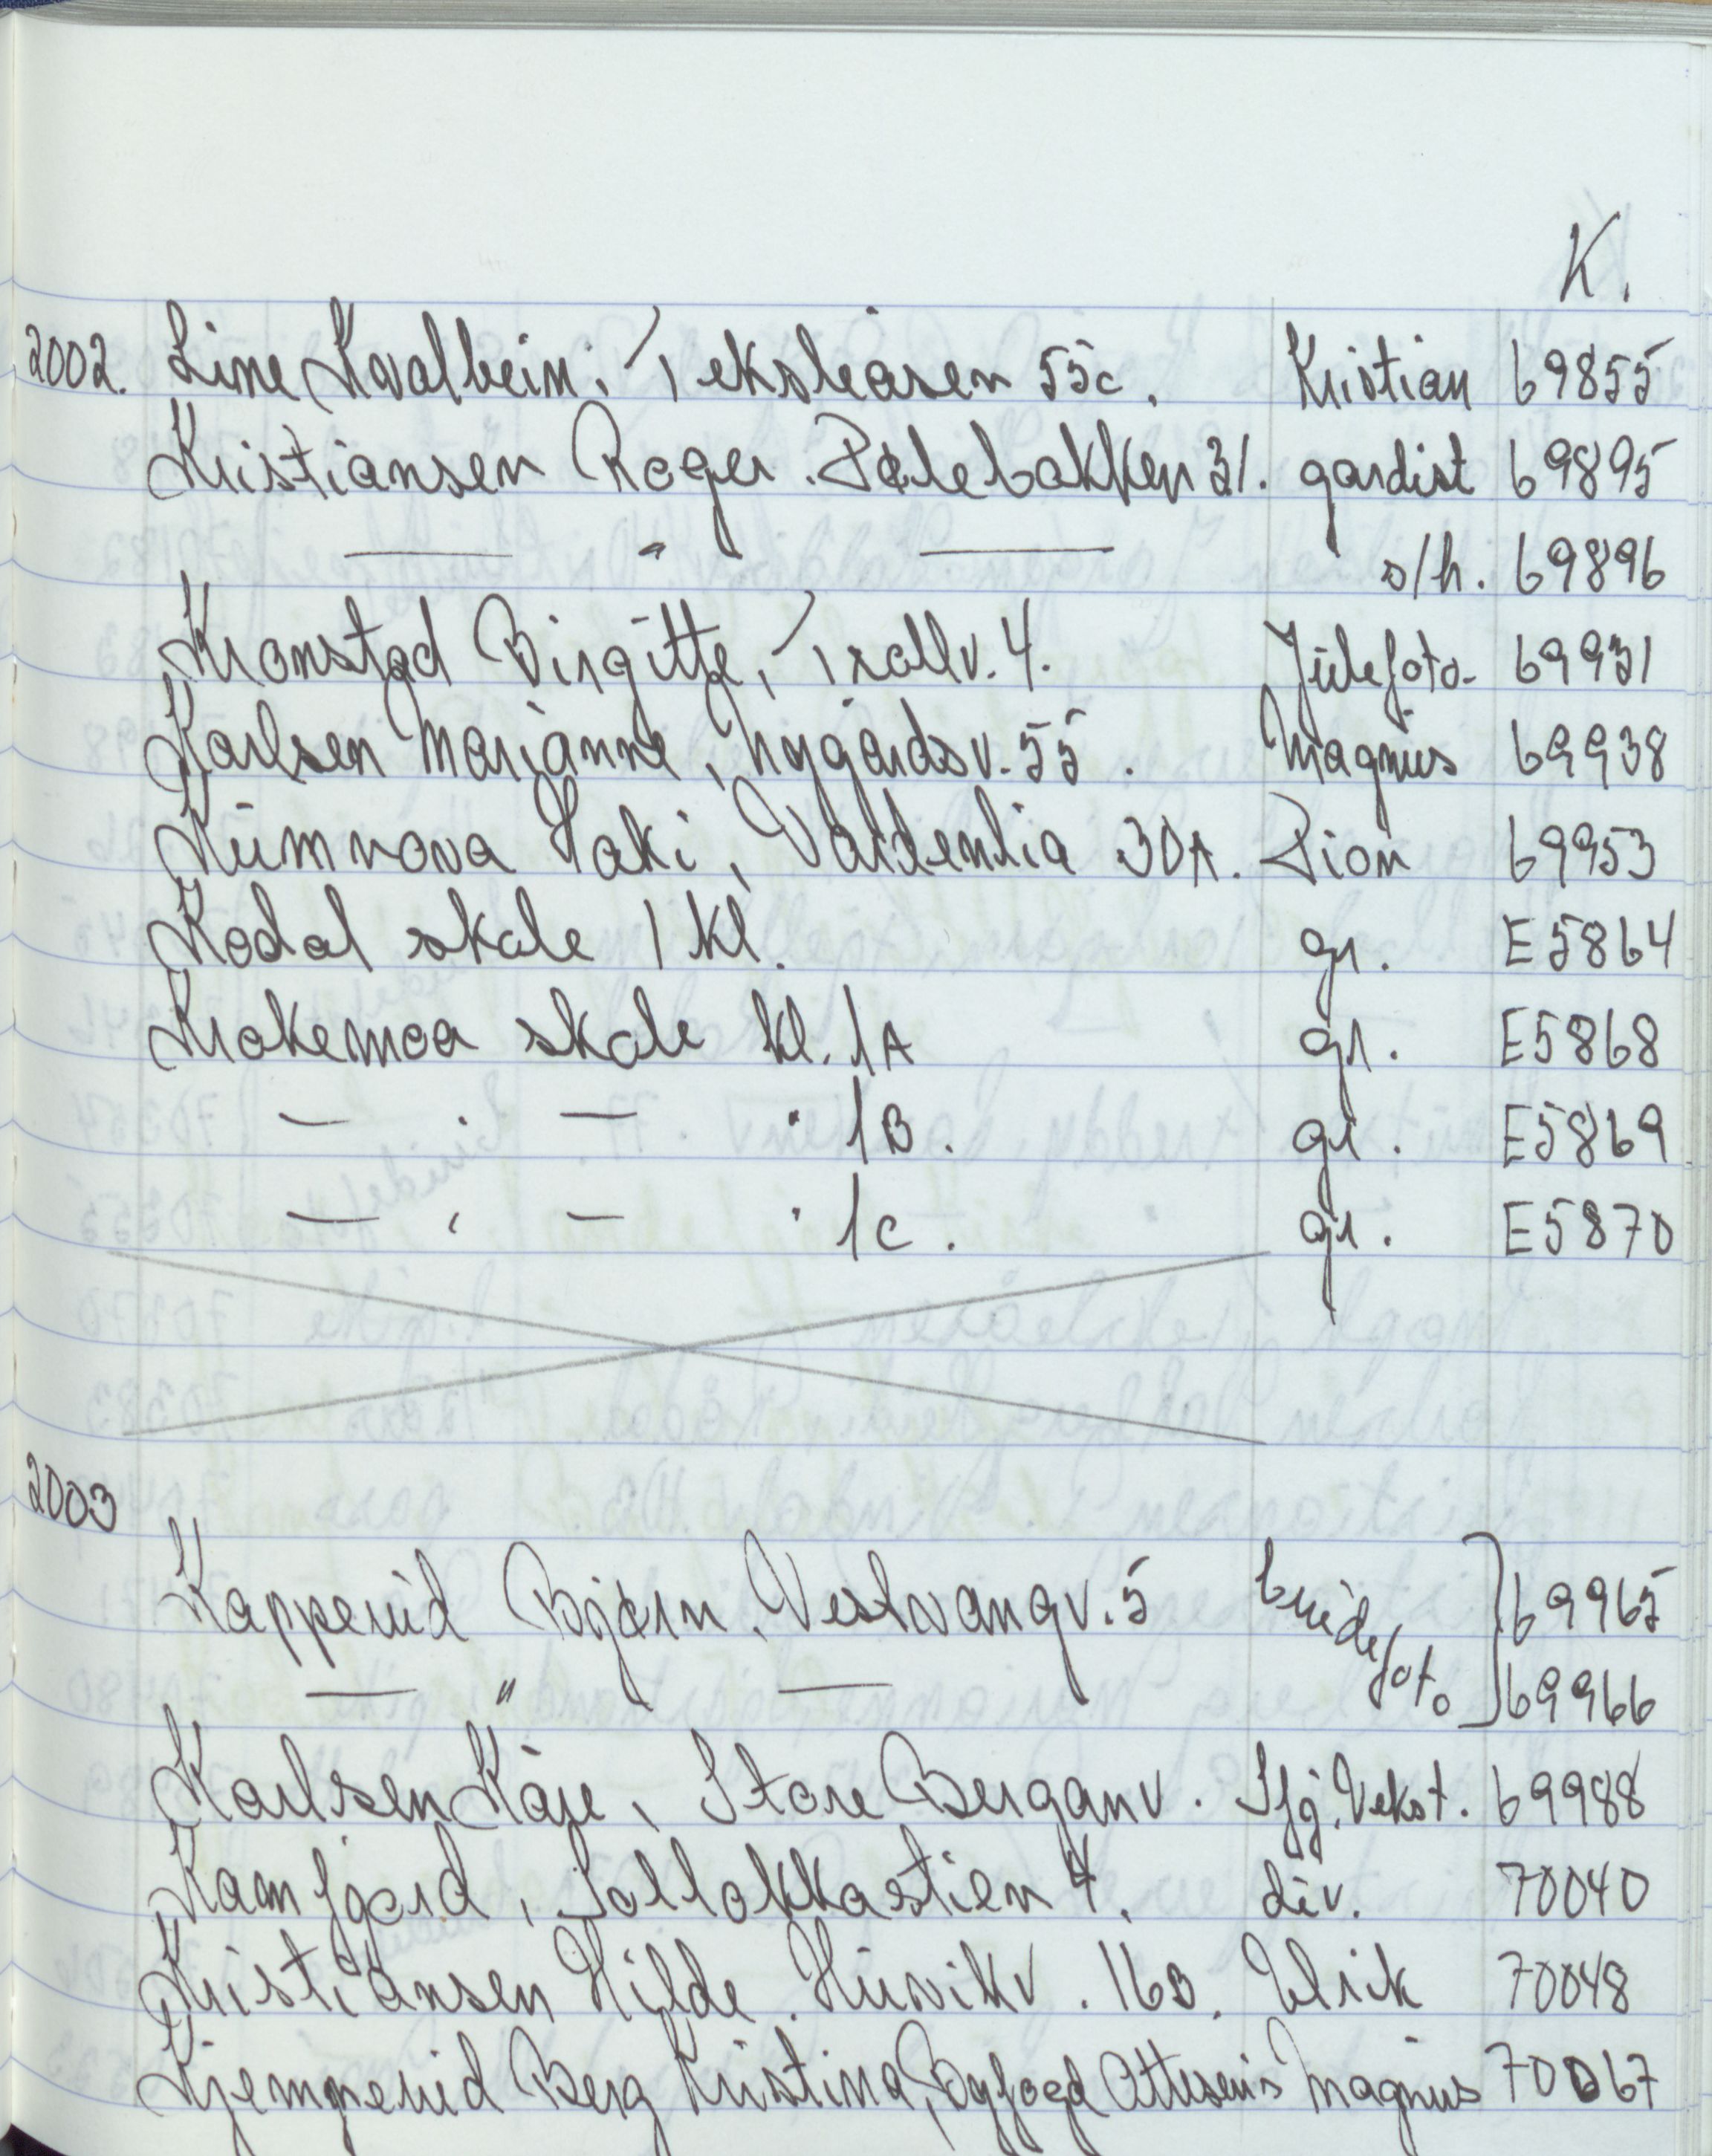 K.
2002. Line Kvalheim. Teksleåsen 55c. Kristian 69855
Kristiansen Roger. Pølebakken 31. gardist 69895
— " — s/h. 69896
Kronstad Birgitte, Trollv. 4. Julefoto. 69931
Karlsen Marianne, Nygårdsv. 55. Magnus 69938
Haki, Vardenlia 30A. Dion 69953
Kodal skole 1 kl. gr. E5864
Krokemoa skole kl. 1A gr. E5868
— " — " 1B. gr. E5869
— " — " 1C. gr. E5870
2003
Kapperud Bjørn, Vestvangv. 5 brudefoto 69965
— " — 69966
Karlsen Kåre, Store Berganv. Sfj. Vekst. 69988
Kamfjord, 4. div. 70040
Kristiansen Hilde. Huvikv. 16B. Ulrik 70048
Kjemperud Berg Kristina, Byfoged Magnus 70067